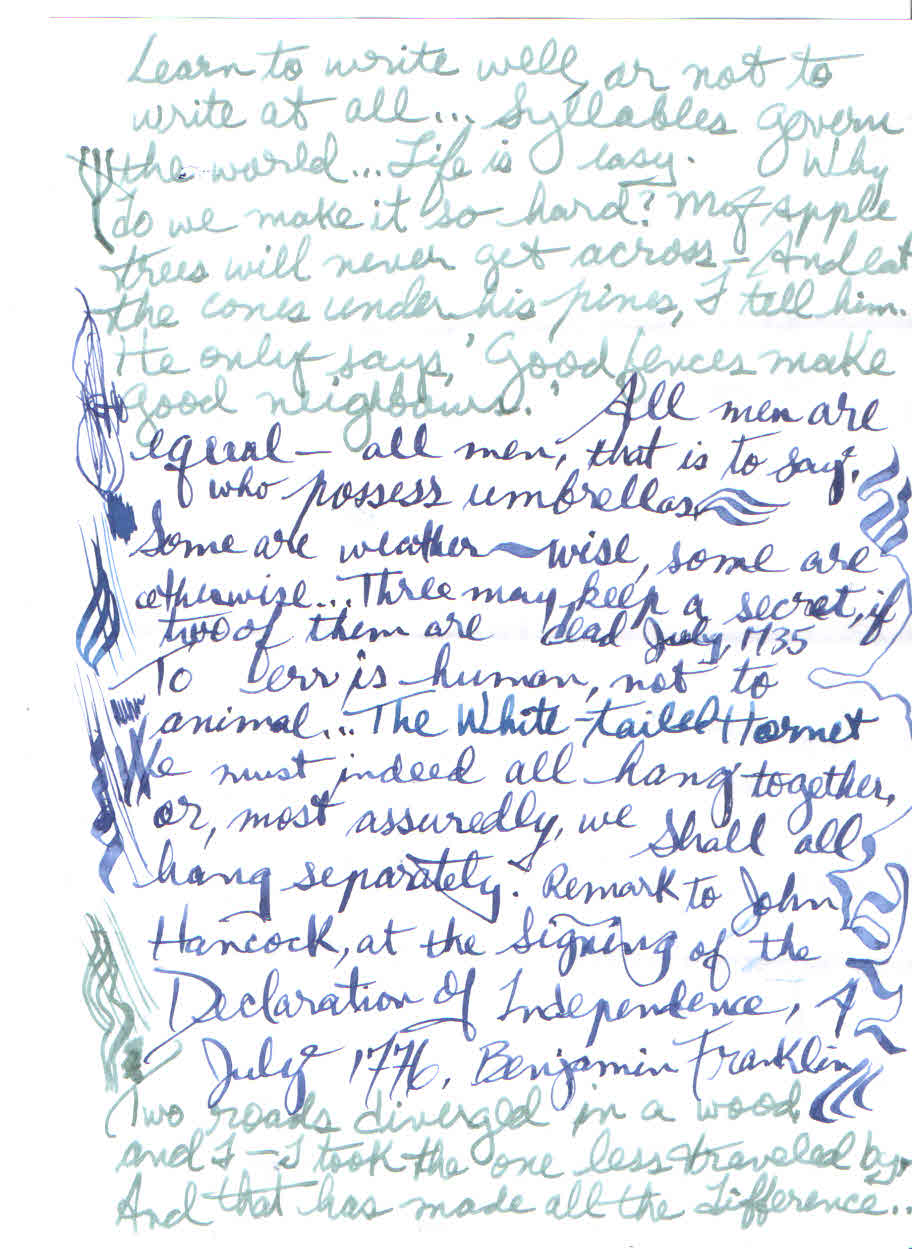 Learn to write well, or not to
write at all... Syllables govern
the world... Life is easy. Why
do we make it so hard? My apple
trees will never get across - And eat
the cones under his pines, I tell him.
He only says, 'Good fences make
good neighbours.' All men are
equal - all men, that is to say,
who possess umbrellas
Some are weather-wise, some are
otherwise... Three may keep a secret, if
two of them are dead July, 1735
To err is human, not to
animal... The White-tailed Hornet
We must indeed all hang together,
or, most assuredly, we shall all
hang separately. Remark to John
Hancock, at the Signing of the
Declaration of Independence, 4
July 1776, Benjamin Franklin
Two roads diverged in a wood
and I - I took the one less traveled by,
And that has made all the difference...